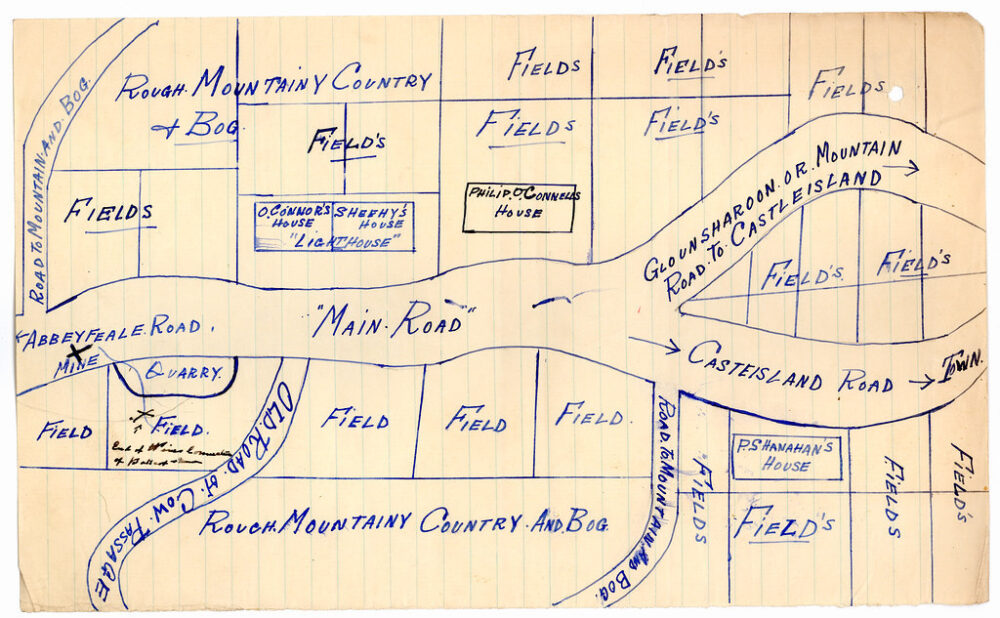 ROAD TO MOUNTAIN AND BOG.
ROUGH MOUNTAINY COUNTRY
& BOG
FIELDS
FIELD'S
FIELDS
FIELD'S
FIELD'S
FIELDS
FIELD'S
FIELDS
O.CONNOR'S
HOUSE
SHEEHY'S
HOUSE
"LIGHTHOUSE"
PHILIP.O'CONNELLS
HOUSE
GLOUNSHAROON. OR. MOUNTAIN
ROAD. TO. CASTLEISLAND
FIELD'S
FIELD'S
ABBEYFEALE. ROAD.
"MAIN. ROAD"
CASTEISLAND ROAD
TOWN.
MINE
QUARRY.
FIELD
FIELD.
End of Wires
OLD. ROAD. or. COW. PASSAGE
FIELD
FIELD
FIELD.
ROAD. TO MOUNTAIN. AND BOG.
"FIELDS
P.SHANAHAN'S
HOUSE
FIELD'S
FIELDS
FIELD'S
ROUGH. MOUNTAINY COUNTRY. AND. BOG